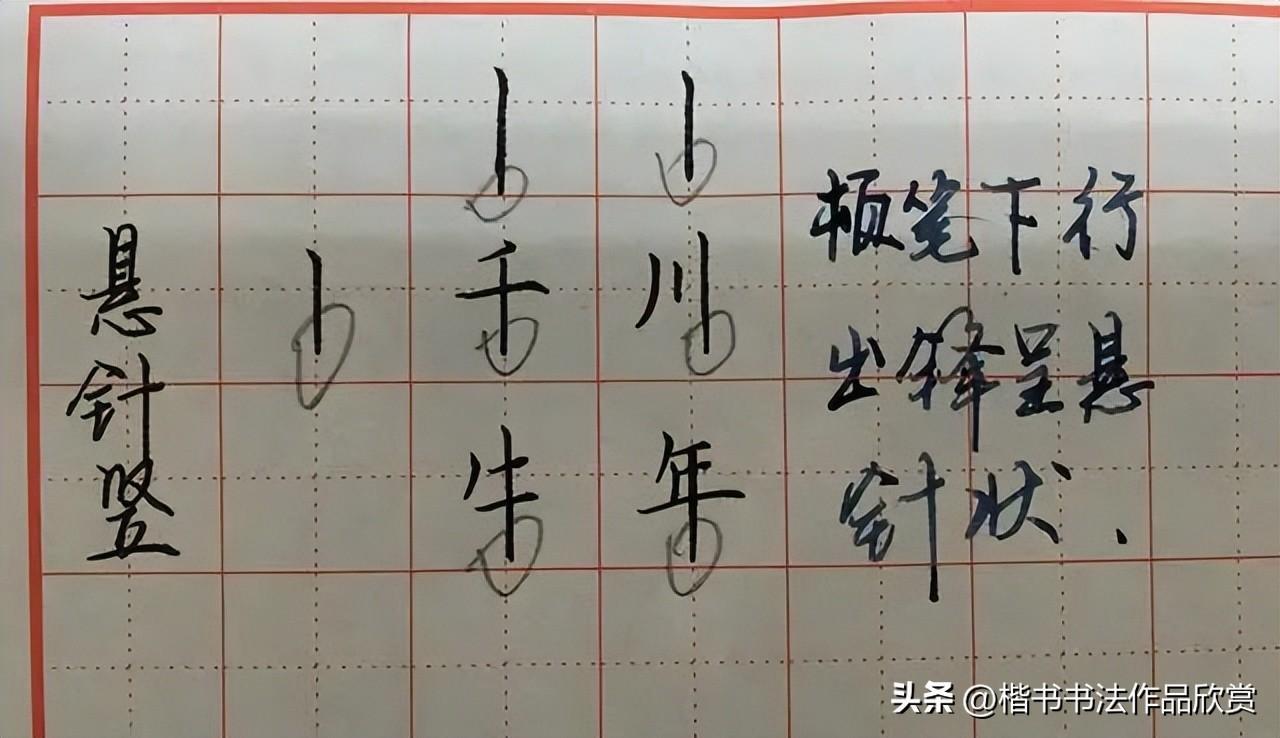 悬针竖
千
川
牛
年
顿笔下行
出锋呈悬
针状.
头条 @楷书书法作品欣赏